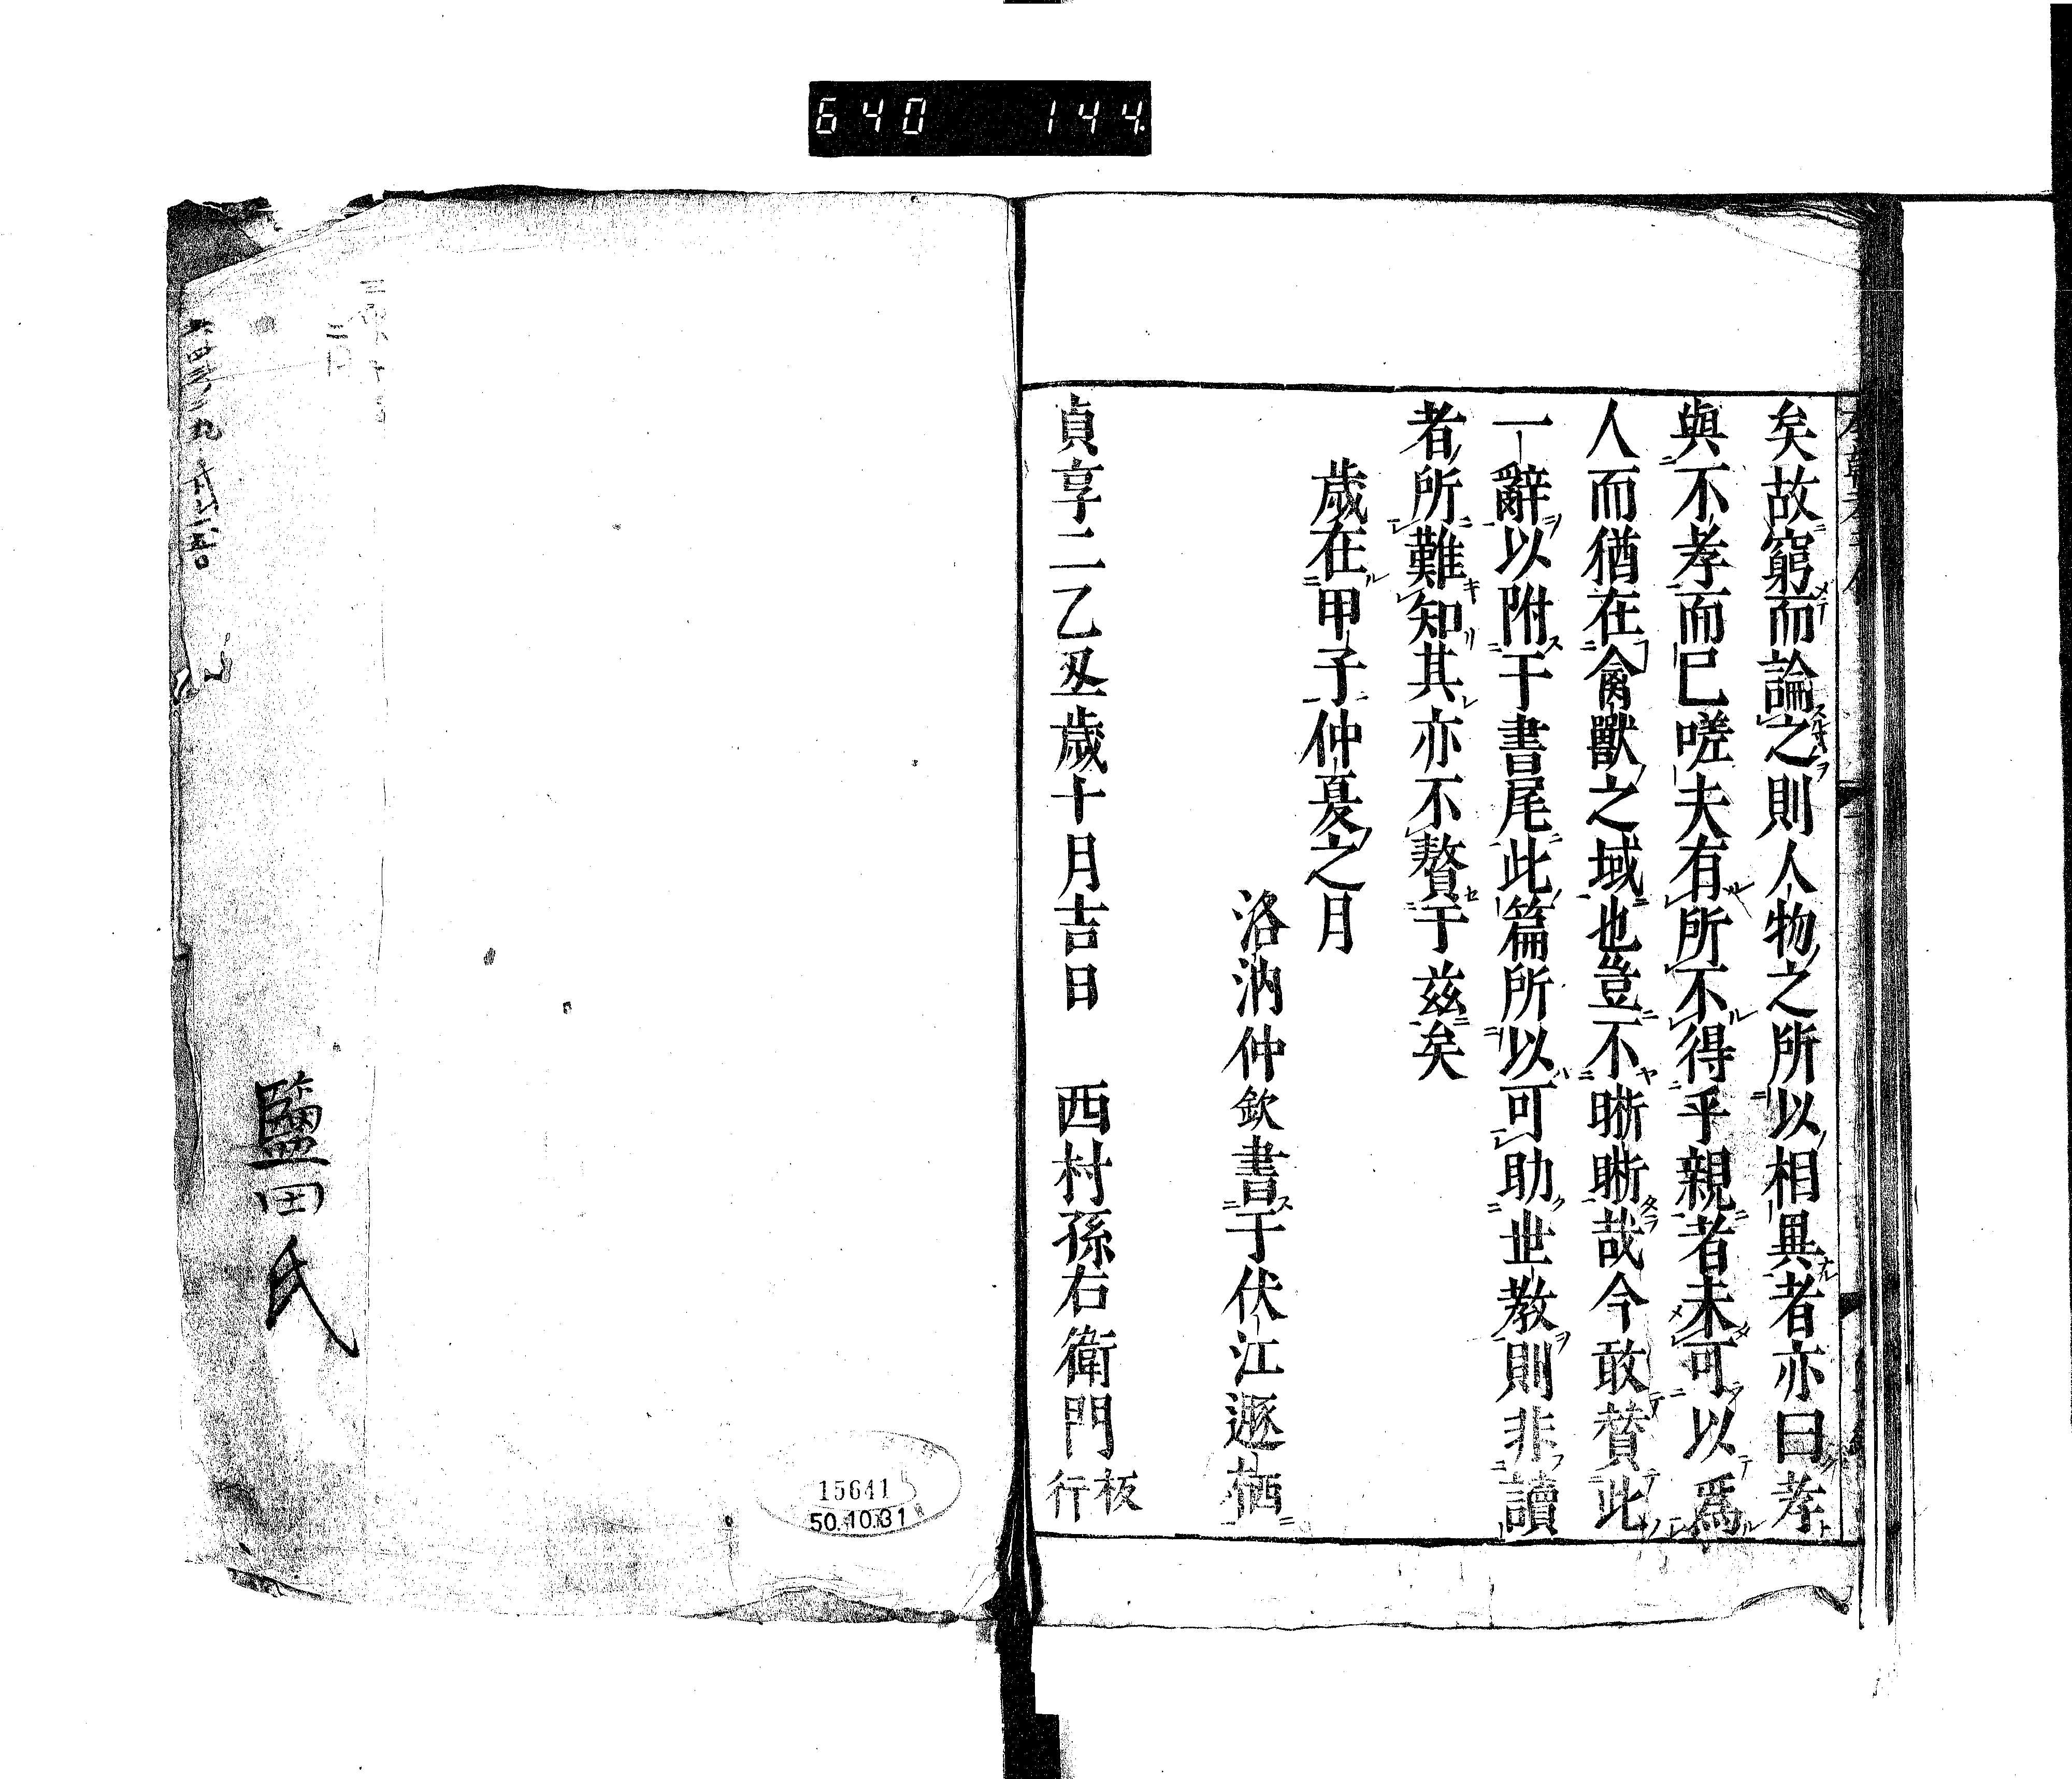 640 144
矣故窮而論之則人物之所以相異者亦曰孝
與不孝而已嗟夫有所不得乎親者未可以爲
人而猶在禽獸之域也豈不晣晣哉今敢賛此
一辭以附于書尾此篇所以可助世教則非讀
者所難知其亦不贅于茲矣
歲在甲子仲夏之月
洛汭仲欽書于伏江遯栖
貞享二乙丑歲十月吉日 西村孫右衛門 板行
鹽田氏
15641
50.10.31